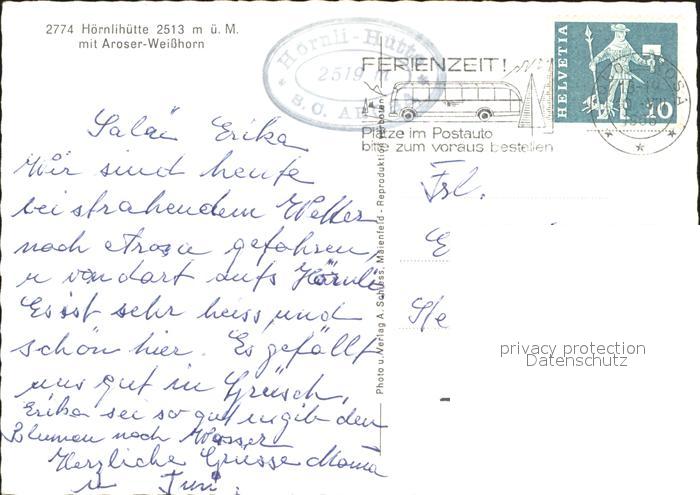 2774 Hörnlihütte 2513 m ü. M.
mit Aroser-Weißhorn
Hörnli-Hütte
2519 m
S.C. AROSA
FERIENZEIT!
Plätze im Postauto
bitte zum voraus bestellen
HELVETIA
10
AROSA
Salü Erika
Wir sind heute
bei strahendem Wetter
nach Arosa gefahren,
u von dort aufs Hörnli
Es ist sehr heiss und
schön hier. Es gefällt
uns gut in Grüsch,
Erika sei so gut u gib den
Blumen noch Wasser
Herzliche Grüsse Mama
u
Photo u. Verlag A. Schloss, Maienfeld - Reproduktion verboten
Frl.
E
privacy protection
Datenschutz